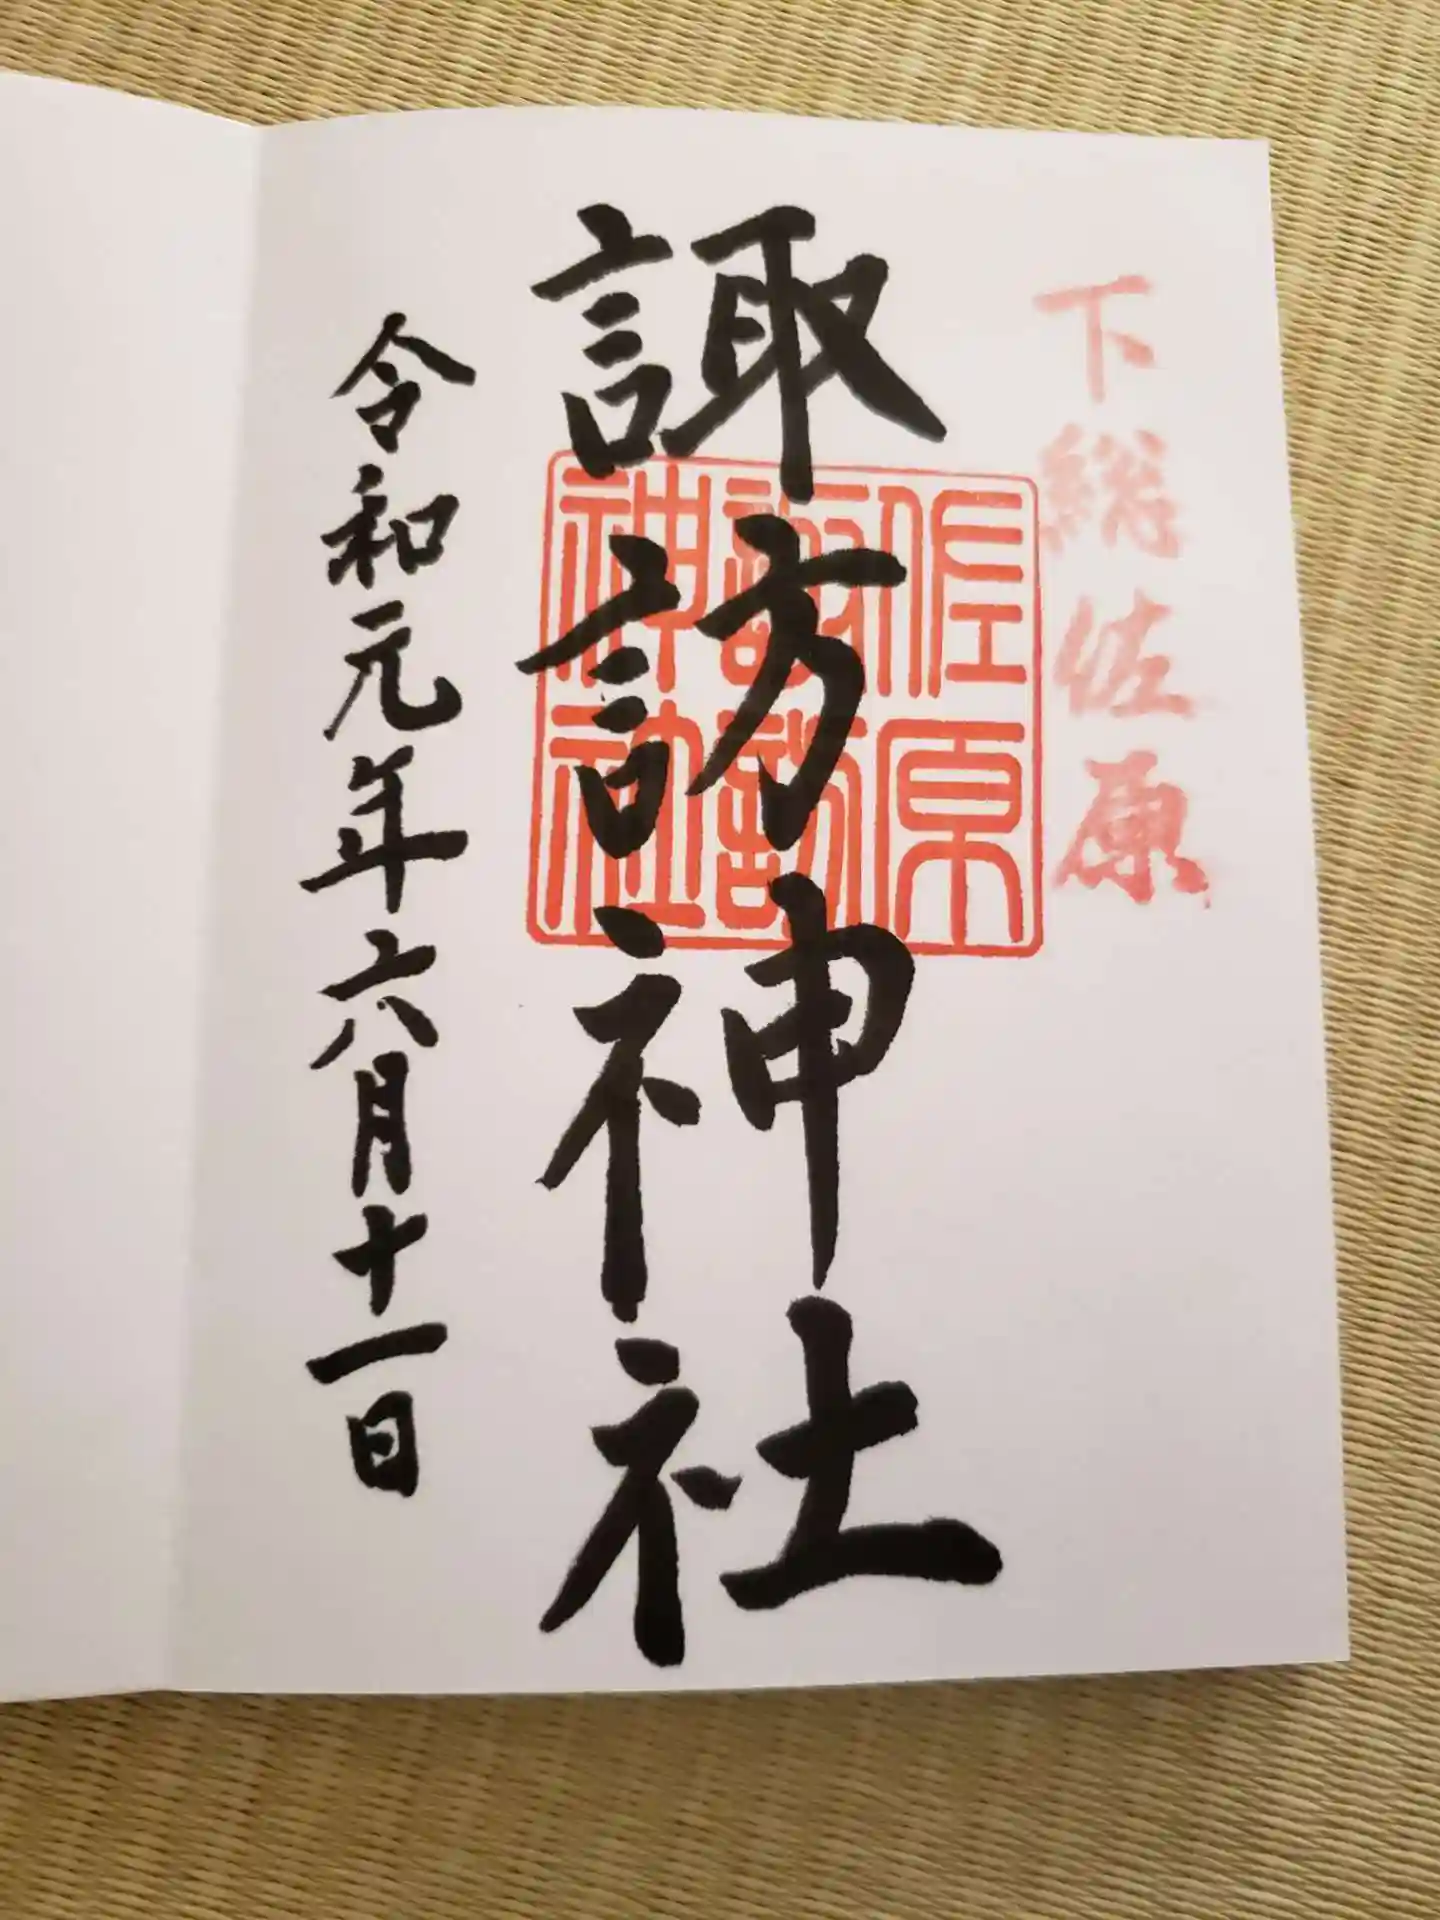 下総佐原
諏訪神社
佐原
諏訪
神社
令和元年六月十一日